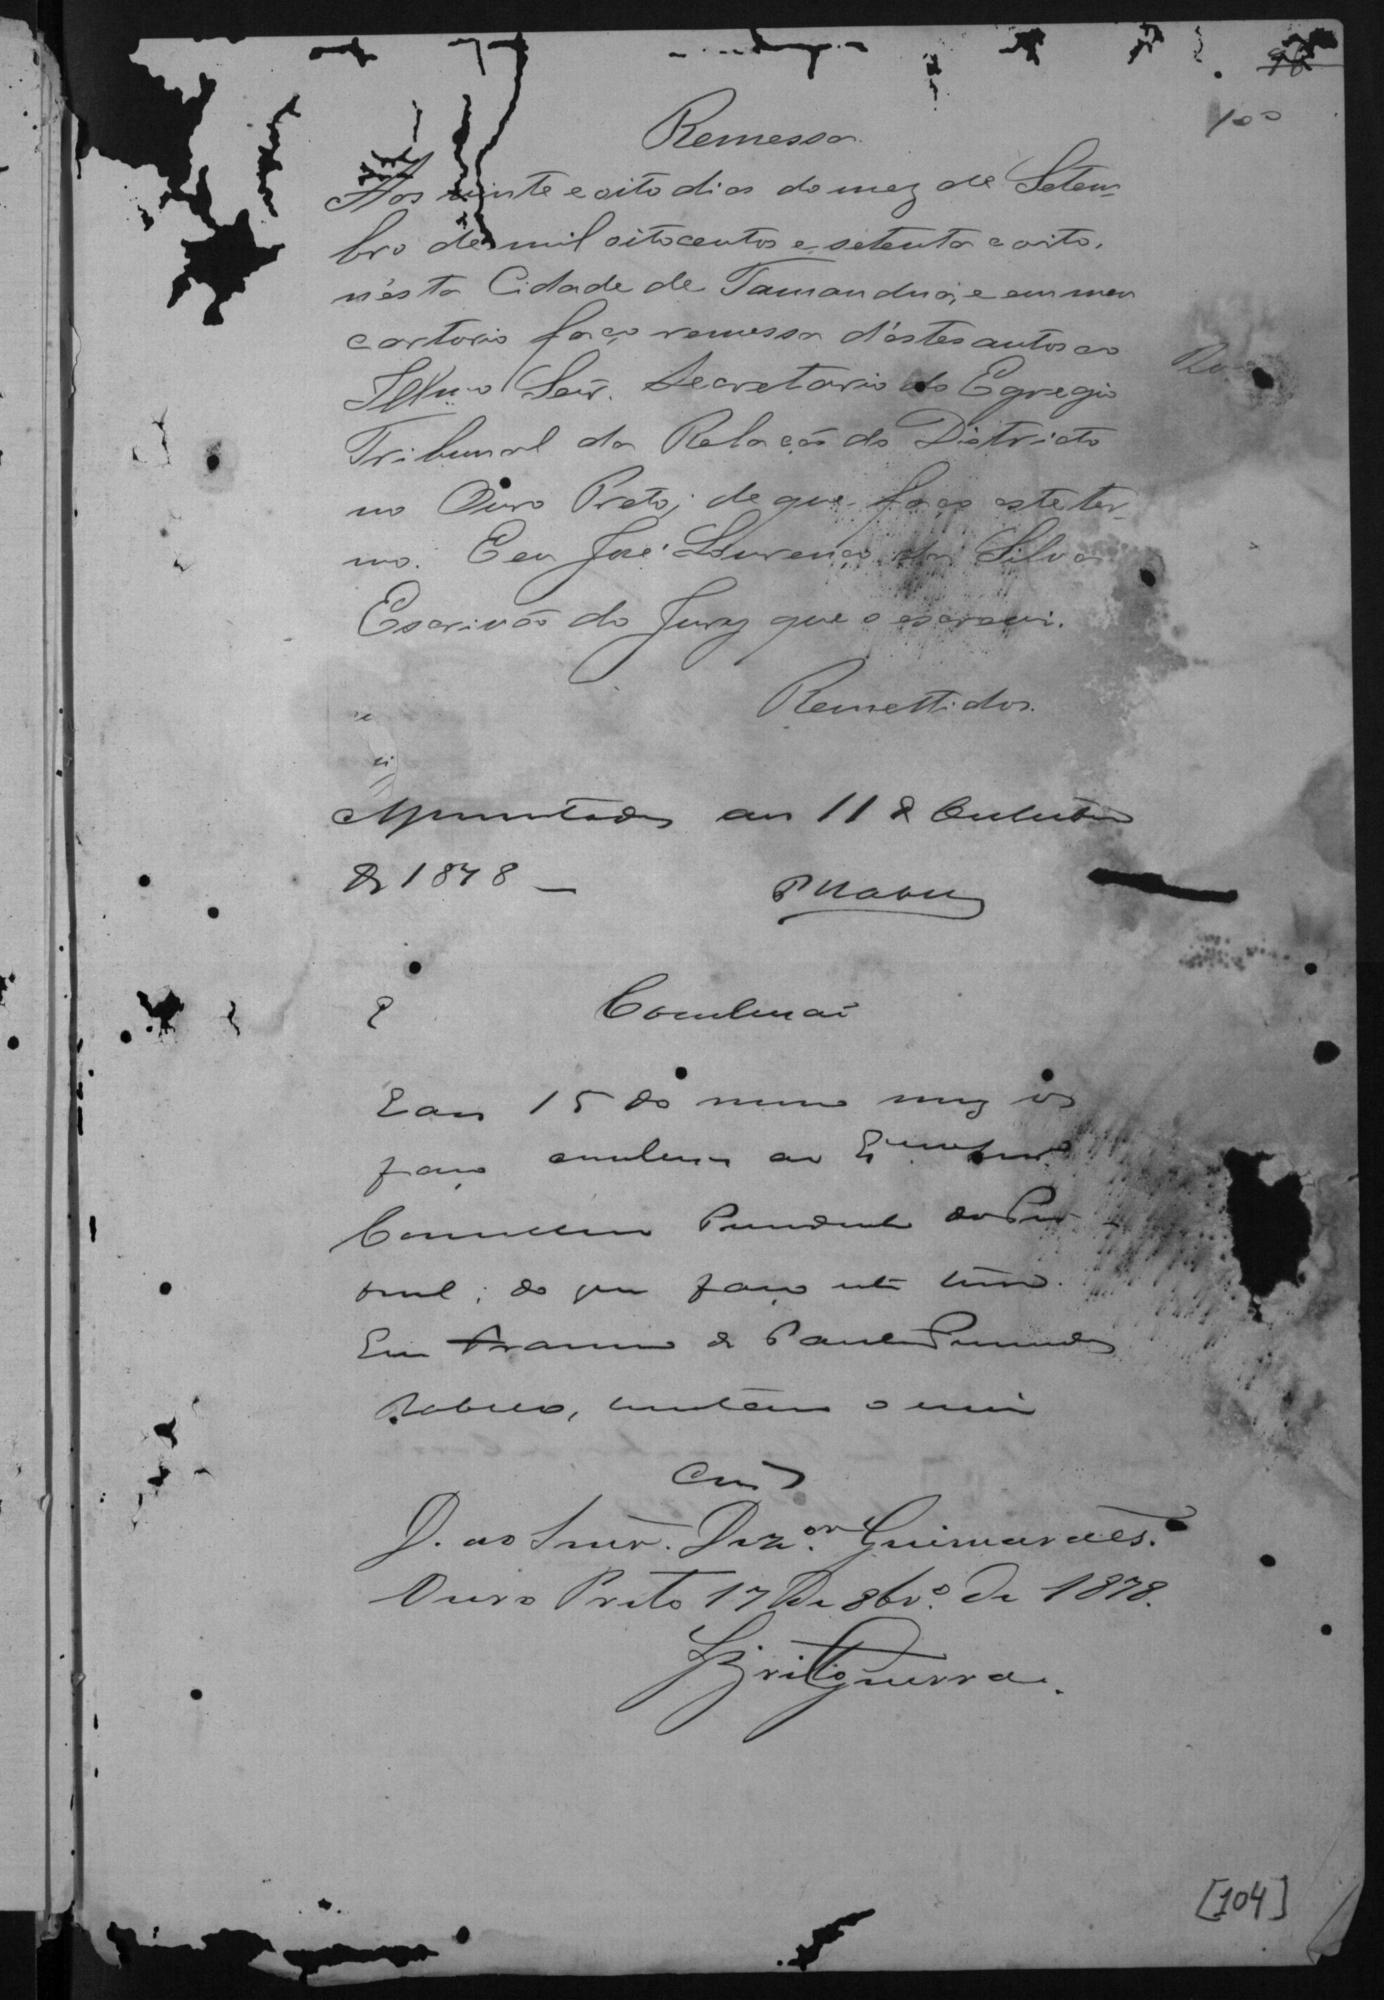 98
100
Remessa
Aos vinte e oito dias do mez de Setem-
bro de mil oitocentos e setenta e oito,
n'esta Cidade de Tamanduá, e em meu
cartorio faço remessa d'estes autos ao
Illmo Senr. Secretario do Egregio
Tribunal da Relação do Districto
no Ouro Preto; de que faço este ter-
mo. E eu José Lourenço da Silva
Escrivão do Jury que o escrevi.
Remettidos.
Apresentados aos 11 de Outubro
de 1878 —
Conclusão
E aos 15 do mesmo mez os
faço conclusos ao Exmo Senr.
Conselheiro Presidente do Tri-
bunal; do que faço este termo.
Eu Francisco de Paula
Rabello, secretario o escrevi
Cls
D. ao Senr. Dezor. Guimarães.
Ouro Preto 17 de 8bro. de 1878.
Brito Guerra.
[104]